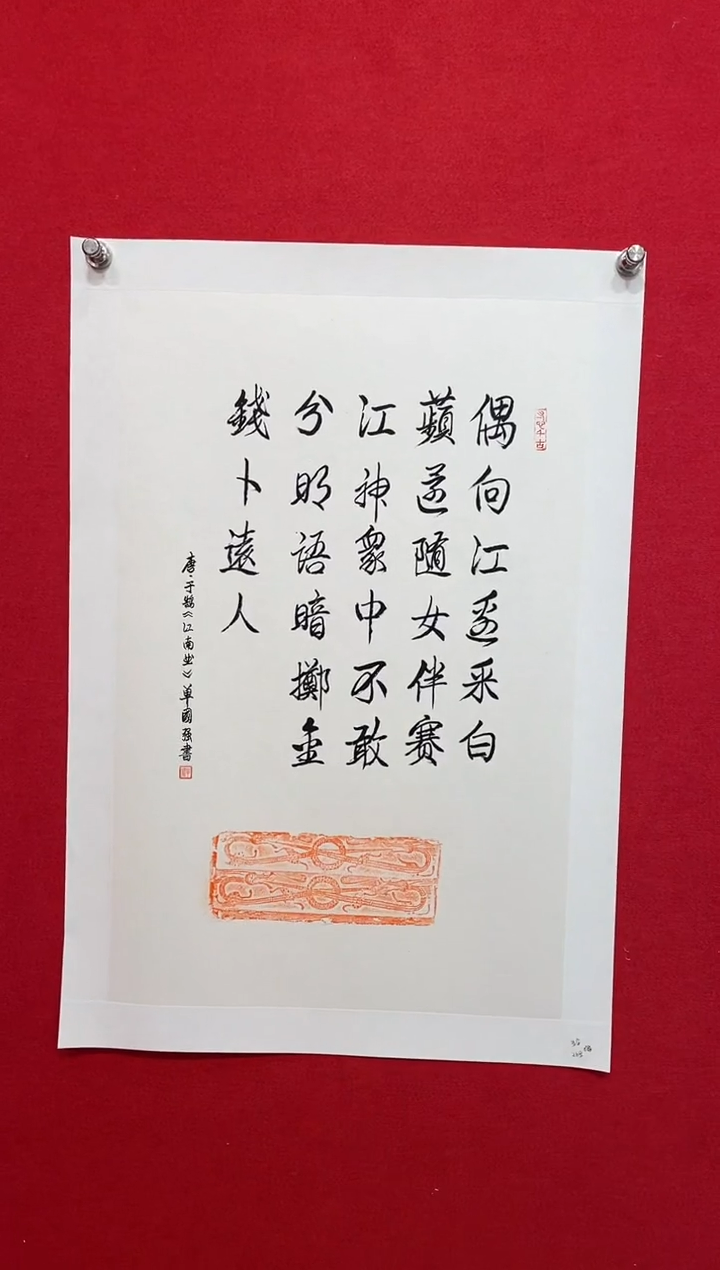 寸心千古
偶向江邊采白
蘋還隨女伴賽
江神衆中不敢
分明語暗擲金
錢卜遠人
唐·于鵠《江南曲》單國强書